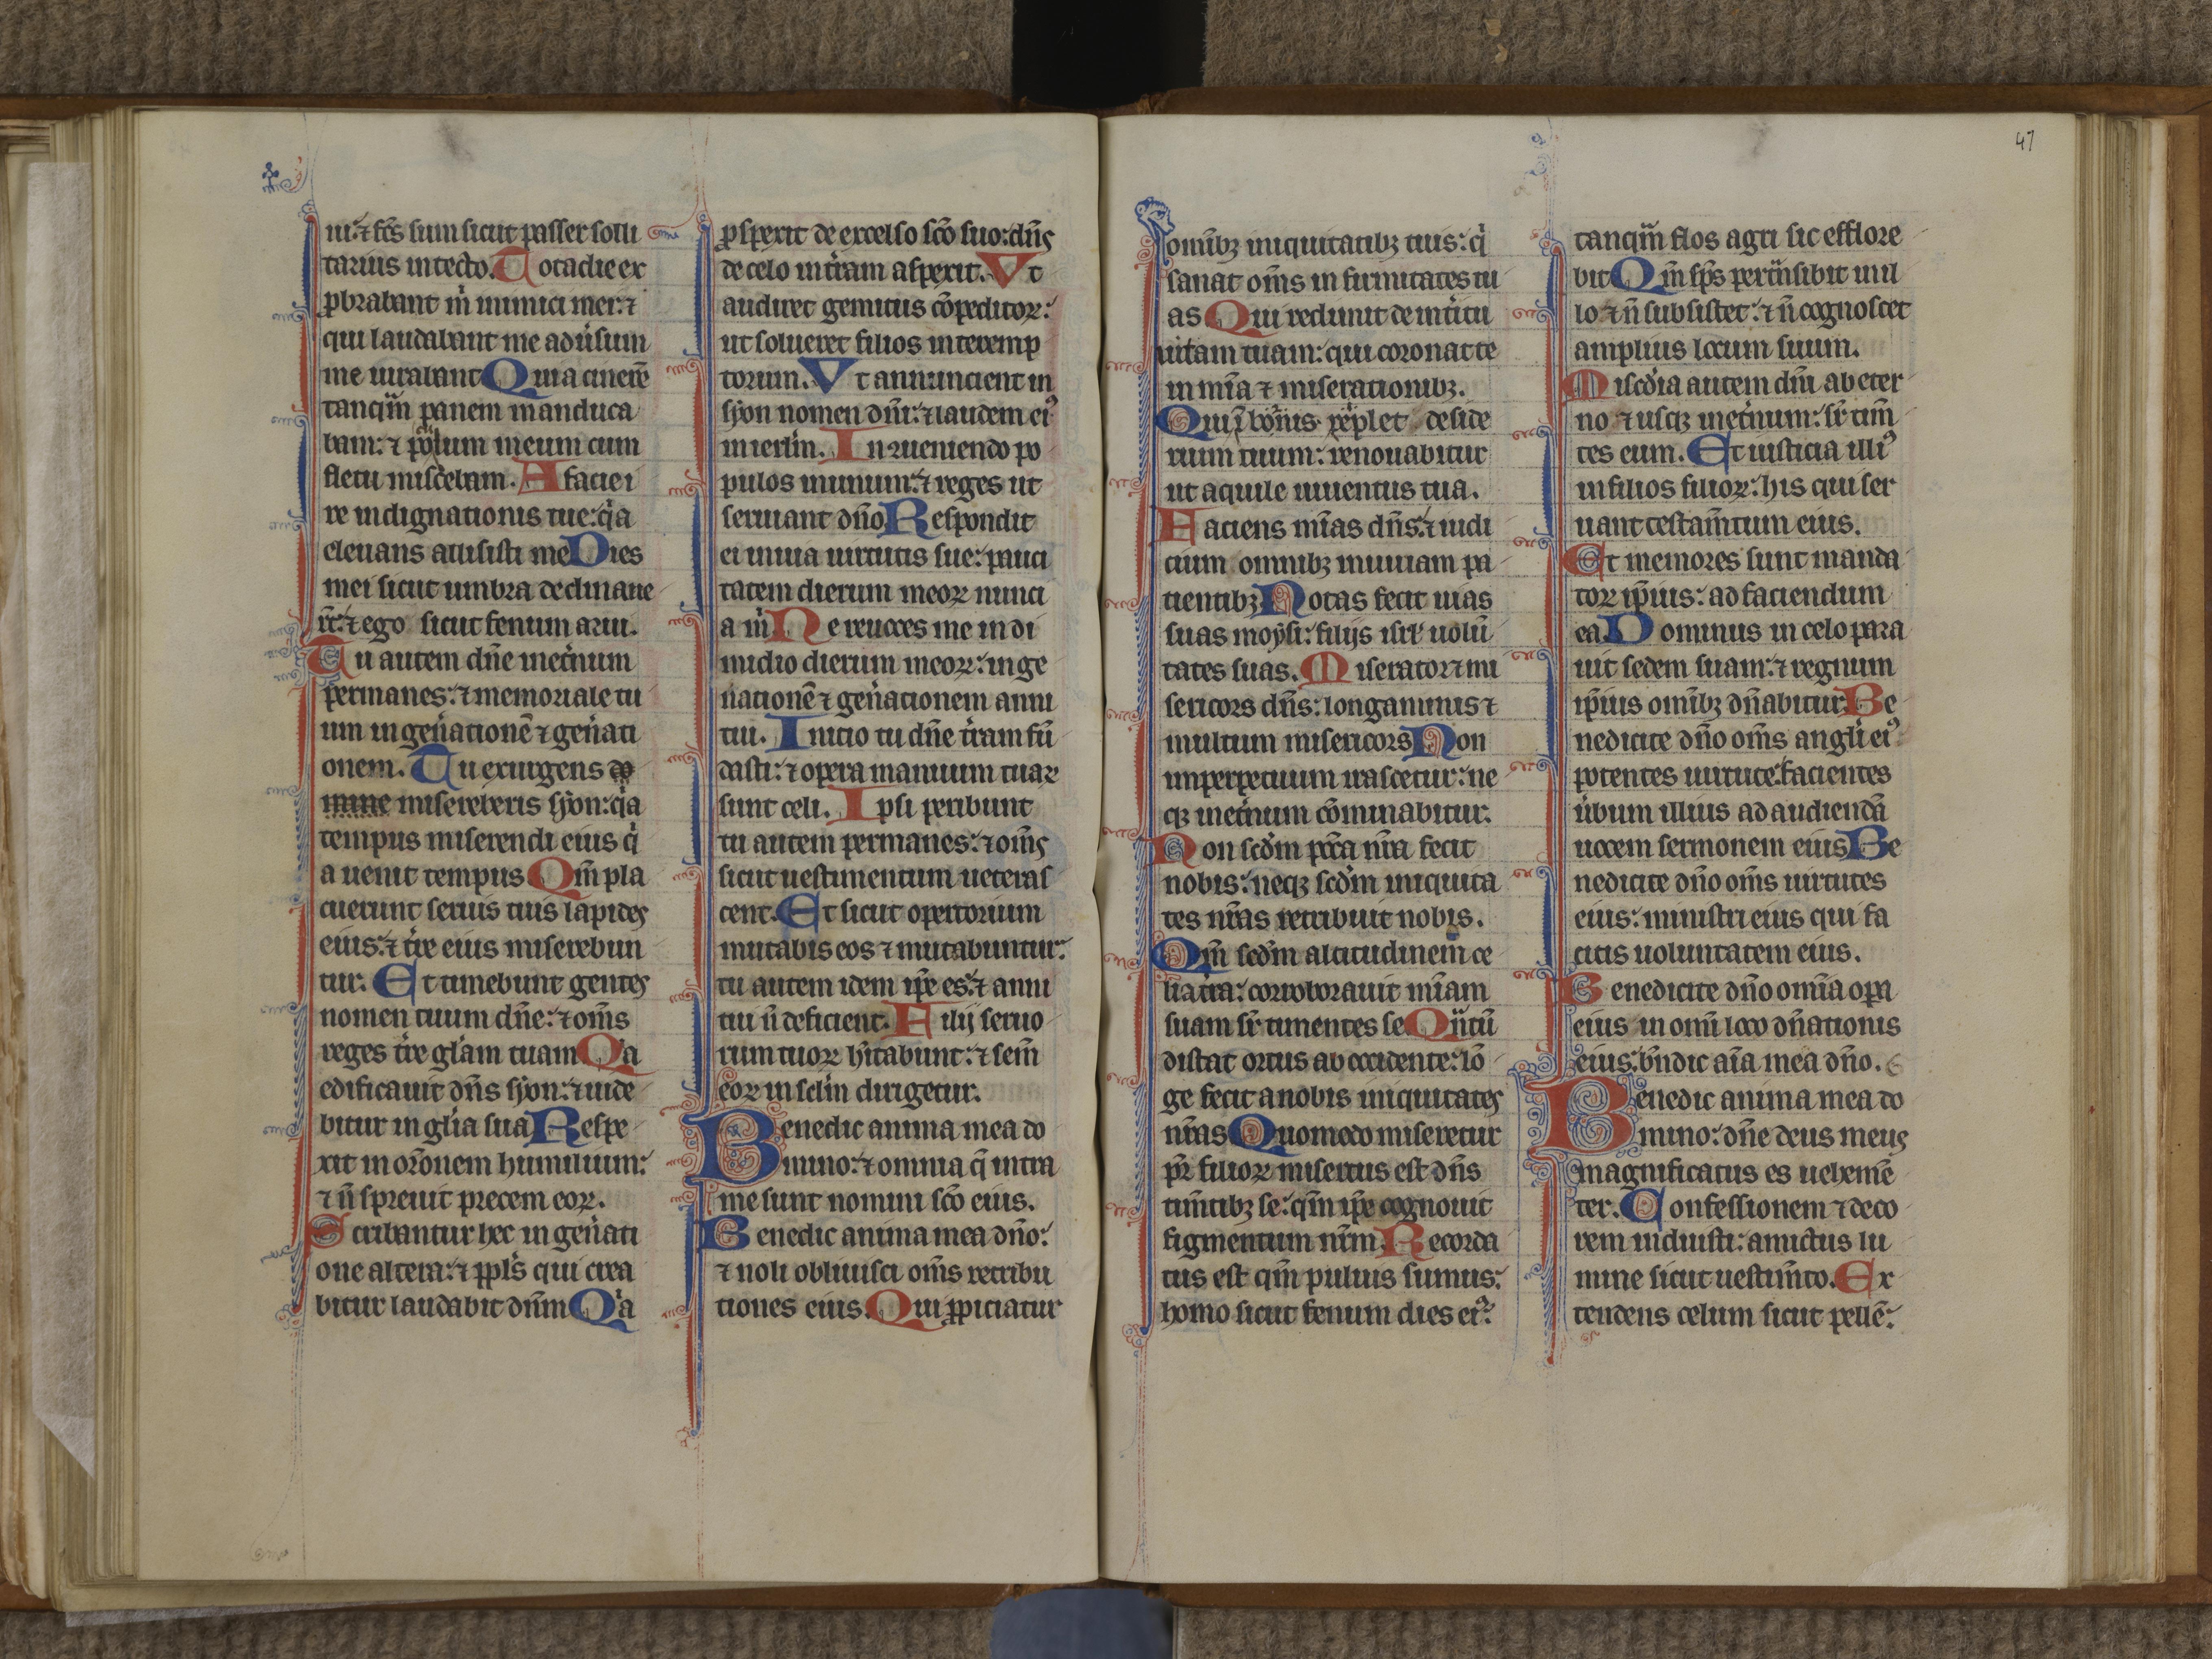 ui: ⁊ fc̄s sum sicut passer soli
tarius in tecto. Tota die ex
ꝓbrabant m̄ inimici mei: ⁊
qui laudabant me adūsum
me iurabant Quia cinerē
tanqm̄ panem manduca
bam: ⁊ meum cum
fletu miscebam. A facie i
re indignationis tue: qa
eleuans allisisti me Dies
mei sicut umbra declinaue
rt̄: ⁊ ego sicut fenum arui.
Tu autem dn̄e inet̄num
permanes: ⁊ memoriale tu
um in gen̄ationē ⁊ gen̄ati
onem. Tu exurgens do
mine misereberis syon: qa
tempus miserendi eius q
a uenit tempus Qm̄ pla
cuerunt seruis tuis lapides
eius: ⁊ tr̄e eius miserebun
tur. Et timebunt gentes
nomen tuum dn̄e: ⁊ om̄s
reges tr̄e gl̄am tuam Qa
edificauit dn̄s syon: ⁊ uide
bitur in gl̄ia sua Respe
xit in or̄onem humilium:
⁊ n̄ spreuit precem eoꝝ.
Scribantur hec in gen̄ati
one altera: ⁊ ppl̄s qui crea
bitur laudabit dn̄m Qa
ꝓspexit de excelso sc̄o suo: dn̄s
de celo in tr̄am aspexit. Vt
audiret gemitus cōpeditoꝝ:
ut solueret filios interemp
torum. Vt annuncient in
syon nomen dn̄i: ⁊ laudem ei⁹
in ierlm̄. In ueniendo po
pulos in unum: ⁊ reges ut
seruiant dn̄o Respondit
ei in uia uirtutis sue: pauci
tatem dierum meoꝝ nunci
a m̄ Ne reuoces me in di
midio dierum meoꝝ: in ge
n̄ationē ⁊ gen̄ationem anni
tui. Inicio tu dn̄e tr̄am fū
dasti: ⁊ opera manuum tuaꝝ
sunt celi. Ipsi peribunt
tu autem permanes: ⁊ om̄s
sicut uestimentum ueteras
cent. Et sicut opertorium
mutabis eos ⁊ mutabuntur:
tu autem idem ip̄e es: ⁊ anni
tui n̄ deficient. Filij seruo
rum tuoꝝ hītabunt: ⁊ sem̄
eoꝝ in sclm̄ dirigetur.
Benedic anima mea do
mino: ⁊ omnia q̄ intra
me sunt nomini sc̄o eius.
Benedic anima mea dn̄o:
⁊ noli obliuisci om̄s retribu
tiones eius. Qui ꝓpiciatur
omībꝫ iniquitatibꝫ tuis: q
sanat om̄s infirmitates tu
as Qui redimit de intitu
uitam tuam: qui coronat te
in mīa ⁊ miserationibꝫ.
Qui ī bonis replet deside
rium tuum: renouabitur
ut aquile iuuentus tua.
Faciens mīas dn̄s: ⁊ iudi
cium omnibꝫ iniuriam pa
tientibꝫ Notas fecit uias
suas moysi: filijs isrl̄ uolū
tates suas. Miserator ⁊ mi
sericors dn̄s: longanimis ⁊
multum misericors Non
imperpetuum irascetur: ne
qꝫ inet̄num cōminabitur.
Non scd̄m pcc̄a nr̄a fecit
nobis: neqꝫ scd̄m iniquita
tes nr̄as retribuit nobis.
Qm̄ scd̄m altitudinem ce
li a tr̄a: corroborauit mīam
suam sr̄ timentes se Qn̄tū
distat ortus ab occidente: lō
ge fecit a nobis iniquitates
nr̄as Quomodo miseretur
pr̄ filioꝝ misertus est dn̄s
tim̄tibꝫ se: qm̄ ip̄e cognouit
figmentum nr̄m. Recorda
tus est qm̄ puluis sumus:
homo sicut fenum dies ei⁹:
47
tanqm̄ flos agri sic efflore
bit Qm̄ sp̄s pert̄nsibit in il
lo ⁊ n̄ subsistet: ⁊ n̄ cognoscet
amplius locum suum.
Miscd̄ia autem dn̄i ab eter
no ⁊ usqꝫ inet̄num: sr̄ tim̄
tes eum. Et iusticia illi⁹
in filios filioꝝ: his qui ser
uant testam̄tum eius.
Et memores sunt manda
toꝝ ip̄ius: ad faciendum
ea. Dominus in celo para
uit sedem suam: ⁊ regnum
ip̄ius omībꝫ dn̄abitur. Be
nedicite dn̄o om̄s angl̄i ei⁹
potentes uirtute: facientes
ūbum illius ad audiendā
uocem sermonem eius Be
nedicite dn̄o om̄s uirtutes
eius: ministri eius qui fa
citis uoluntatem eius.
Benedicite dn̄o omīa opa
eius in omī loco dn̄ationis
eius: bn̄dic aīa mea dn̄o.
Benedic anima mea do
mino: dn̄e deus meus
magnificatus es uehemē
ter. Confessionem ⁊ deco
rem induisti: amictus lu
mine sicut uestim̄to. Ex
tendens celum sicut pellē: